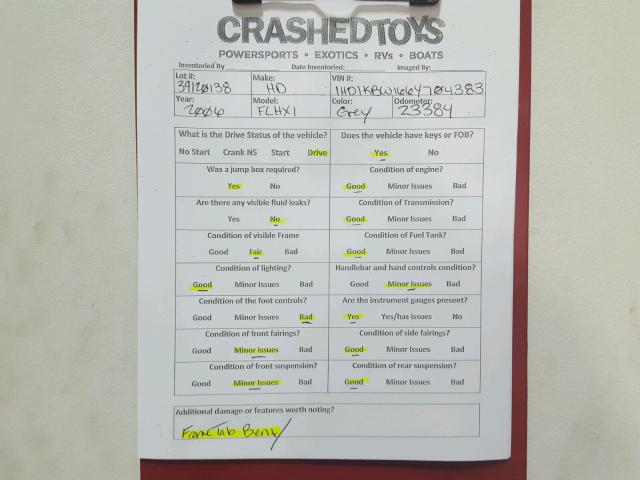 CRASHEDTOYS
POWERSPORTS • EXOTICS • RVs • BOATS
Inventoried By Date Inventoried: Imaged By:
Lot #: Make: VIN #:
39120138 HD
Year: Model: Color: Odometer:
2006 FLHX1 Grey 23384
What is the Drive Status of the vehicle? Does the vehicle have keys or FOB?
No Start Crank NS Start Drive Yes No
Was a jump box required? Condition of engine?
Yes No Good Minor Issues Bad
Are there any visible fluid leaks? Condition of Transmission?
Yes No Good Minor Issues Bad
Condition of visible Frame Condition of Fuel Tank?
Good Fair Bad Good Minor Issues Bad
Condition of lighting? Handlebar and hand controls condition?
Good Minor Issues Bad Good Minor Issues Bad
Condition of the foot controls? Are the instrument gauges present?
Good Minor Issues Bad Yes Yes/has issues No
Condition of front fairings? Condition of side fairings?
Good Minor Issues Bad Good Minor Issues Bad
Condition of front suspension? Condition of rear suspension?
Good Minor Issues Bad Good Minor Issues Bad
Additional damage or features worth noting?
Frame Tab Bent